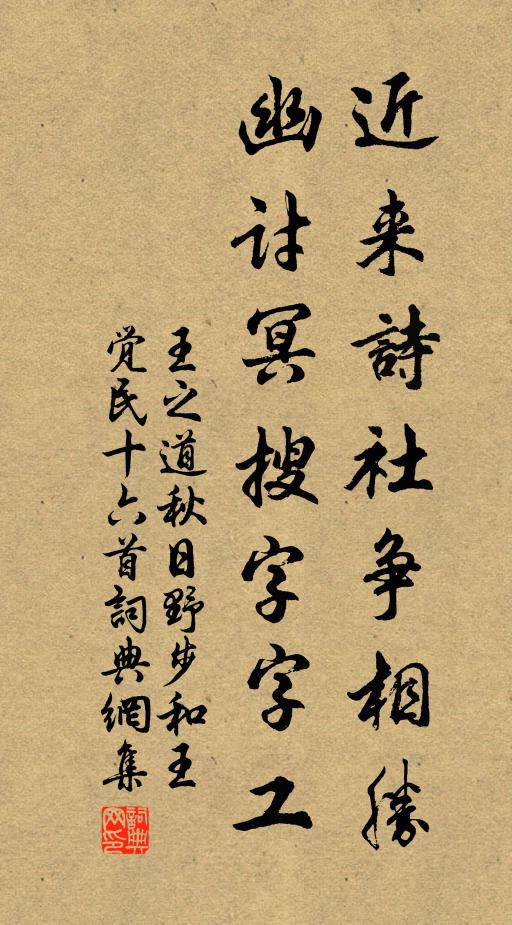 近来詩社争相勝
幽討冥搜字字工
王之道秋日野步和王
覚民十六首詞典網集
詞典網印